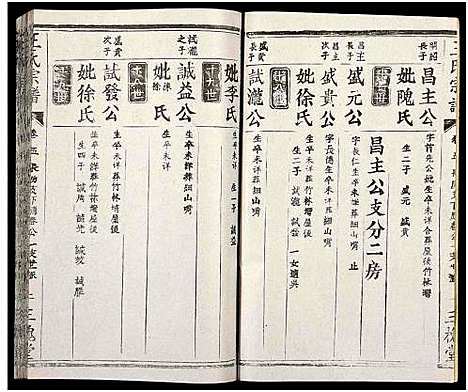 王氏宗譜
明昭長子
昌主公
字首先公妣生卒未詳合葬屋後竹林灣
妣隗氏
生二子 盛元 盛貴
昌主公支分二房
昌主長子
盛元公
字長仁生卒未詳葬細山嘴 止
盛貴公
字長德生卒未詳葬細山嘴
妣 氏
生二子 試瀧 試發 一女適吳
盛貴長子
試瀧公
生卒未詳葬細山嘴
妣李氏
生卒未詳葬細山嘴 生一子 誠益
試瀧之子
誠益公
妣 氏
盛貴次子
試發公
生卒未詳葬竹林灣屋後
妣徐氏
生卒未詳葬竹林灣屋後
生四子
王氏宗譜
卷五
三槐堂
三槐堂